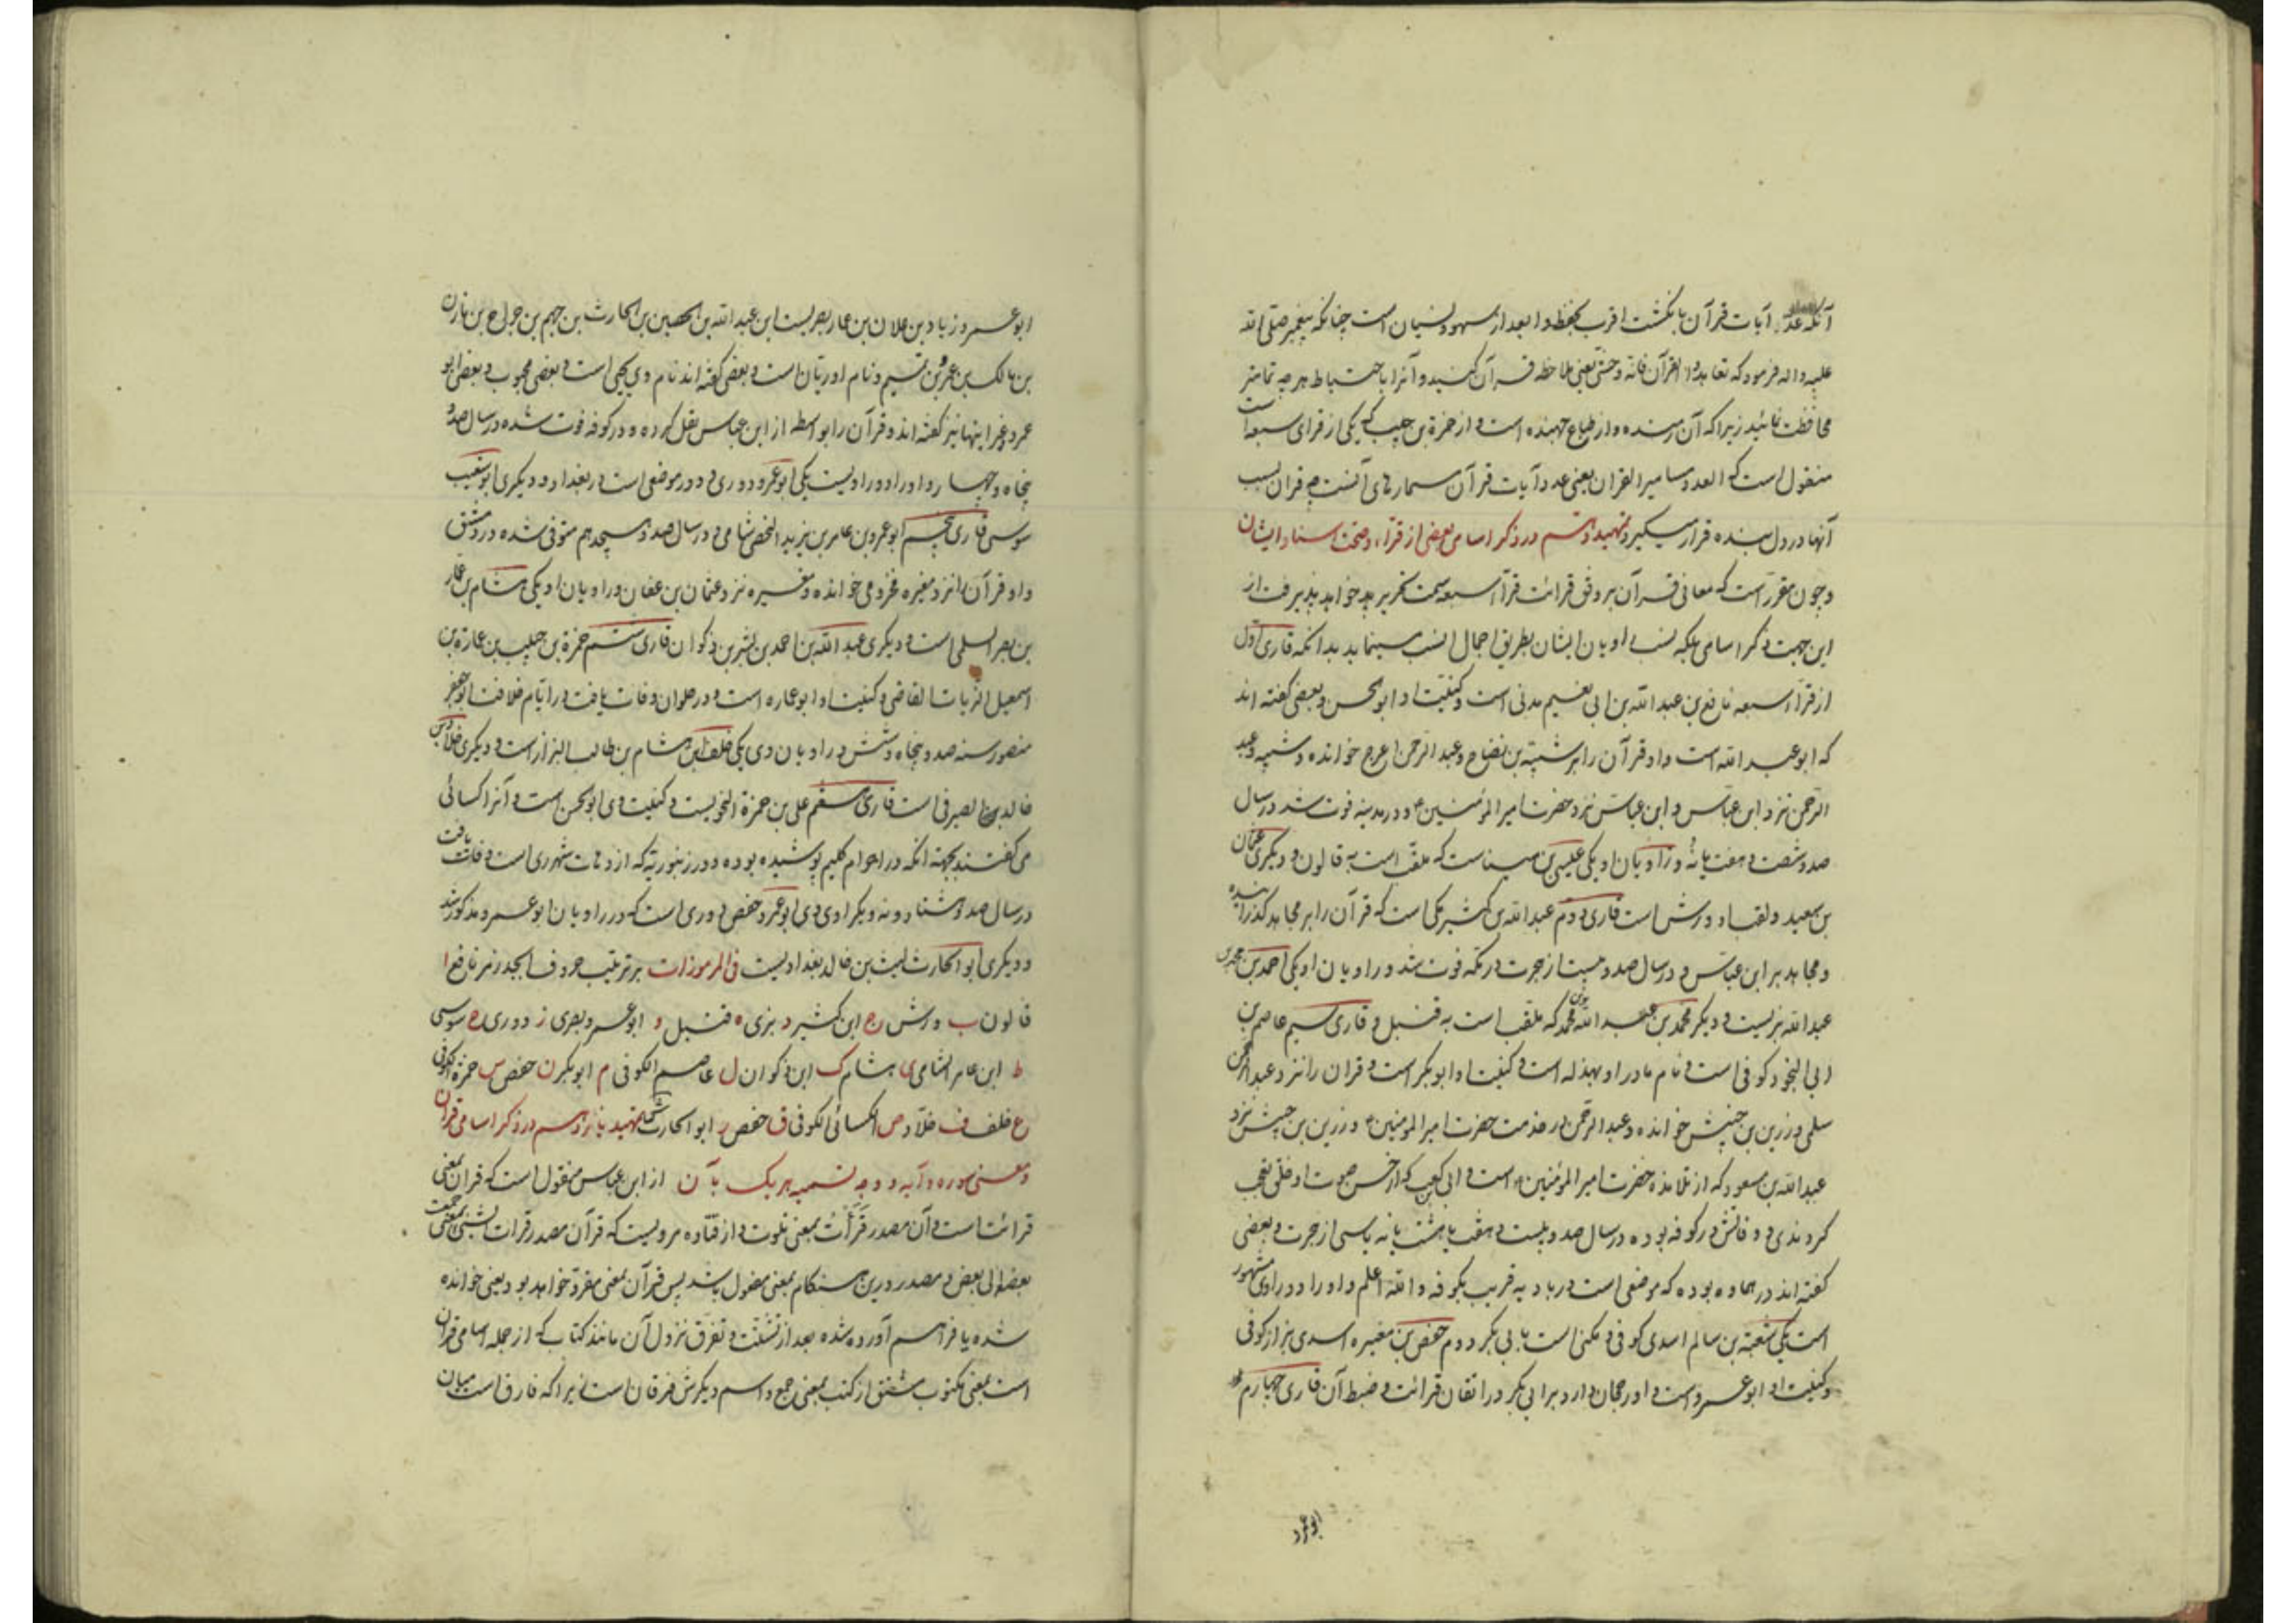 آنکه عدّ آیات قرآن بانگشت اقرب بحفظ و ابعد از سهو و نسیان است چنانکه پیغمبر صلی الله
علیه و اله فرمود که تعاهدوا القرآن فانه وحشی یعنی ملاحظه قرآن کنید و آنرا باحتیاط هر چه تمامتر
محافظت نمائید زیرا که آن رمنده و از طباع جهنده است و از حمزة بن حبیب که یکی از قرای سبعه است
منقول است که العدد مسامیر القران یعنی عدد آیات قرآن مسمارهای آنست چه قران بسبب
آنها در دل بنده قرار میگیرد تمهید دهم در ذکر اسامی بعضی از قراء و صحت اسناد ایشان
و چون مقرر است که معانی قرآن بر وفق قرائت قراء سبعه سمت تحریر خواهد پذیرفت از
این جهت ذکر اسامی بلکه نسب راویان ایشان بطریق اجمال انسب مینماید بدانکه قاری اول
از قراء سبعه نافع بن عبد الله بن ابی نعیم مدنی است و کنیت او ابو الحسن و بعضی گفته اند
که ابو عبد الله است و او قرآن را بر شیبة بن نصاح و عبد الرحمن اعرج خوانده و شیبه و عبد
الرحمن نزد ابن عباس و ابن عباس نزد حضرت امیر المؤمنین ع و در مدینه فوت شد در سال
صد و شصت و هفت یا نه و راویان او یکی عیسی بن میناست که ملقب است به قالون و دیگری عثمان
بن سعید و لقب او ورش است قاری دوم عبد الله بن کثیر مکی است که قرآن را بر مجاهد گذرانیده
و مجاهد بر ابن عباس و در سال صد و بیست از هجرت در مکه فوت شد و راویان او یکی احمد بن محمد بن
عبد الله بزیست و دیگر محمد بن عبد الله محمد که ملقب است به قنبل و قاری سیم عاصم بن
ابی النجود کوفی است و نام مادر او بهدله است و کنیت او ابو بکر است و قران را نزد عبد الرحمن
سلمی و زرین بن حبیش خوانده و عبد الرحمن در خدمت حضرت امیر المومنین ع و زرین بن حبیش نزد
عبد الله بن مسعود که از تلامذه حضرت امیر المؤمنین ع است و ابی کعب که از حسن صوت او خلق تعجب
کردندی و وفاتش در کوفه بوده در سال صد و بیست و هفت یا هشت یا نه یا سی از هجرت و بعضی
گفته اند در سماوه بوده که موضعی است در بادیه قریب بکوفه و الله اعلم و او را دو راوی مشهور
است یکی شعبة بن سالم اسدی کوفی و مکنی است بابی بکر و دوم حفص بن مغیره اسدی بزاز کوفی
و کنیت او ابو عمرو است و او رجحان دارد بر ابی بکر در اتقان قرائت و ضبط آن قاری چهارم
ابو عمرو
ابو عمرو زیاد بن علان بن عمار بصریست ابن عبد الله بن الحصین بن الحارث بن جهم بن خزاعی بن مازن
بن مالک بن عمرو بن تمیم و نام او ریان است و بعضی گفته اند نام وی یحیی است و بعضی محبوب و بعضی ابو
عمرو و غیر اینها نیز گفته اند و قرآن را بواسطه از ابن عباس نقل کرده و در کوفه فوت شده در سال صد و
پنجاه و چهار و او را دو راویست یکی ابو عمرو دوری و دور موضعی است در بغداد و دیگری ابو شعیب
سوسی قاری پنجم ابو عمرو بن عامر بن یزید الیحصی شامی و در سال صد و هیجدهم متوفی شده در دمشق
و او قرآن را نزد مغیره مخزومی خوانده و مغیره نزد عثمان بن عفان و راویان او یکی هشام بن عمار
بن نصر السلمی است و دیگری عبد الله بن احمد بن بشر بن ذکوان قاری ششم حمزة بن حبیب بن عمارة بن
اسمعیل الزیات القاضی و کنیت او ابو عماره است و در حلوان وفات یافت در ایام خلافت ابو جعفر
منصور سنه صد و پنجاه و شش و راویان وی یکی خلف ابن هشام بن طالب البزاز است و دیگری خلاد بن
خالد الصیرفی است قاری هفتم علی بن حمزة النحویست و کنیت وی ابو الحسن است و آنرا کسائی
می گفتند بجهته انکه در احرام گلیم پوشیده بوده و در رنبویه که از دهات شهر ری است وفات یافت
در سال صد و هشتاد و نه و یک راوی وی ابو عمرو حفص دوری است که در راویان ابو عمرو مذکور شد
و دیگری ابو الحارث لیث بن خالد بغدادیست فی المرموزات بر ترتیب حروف ابجد رمز نافع ا
قالون ب ورش ج ابن کثیر د بزی ه قنبل و ابو عمرو بصری ز دوری ح سوسی
ط ابن عامر الشامی ی هشام ک ابن ذکوان ل عاصم الکوفی م ابو بکر ن حفص س حمزة الکوفی
ع خلف ف خلاد ص الکسائی الکوفی ق حفص ر ابو الحارث ش تمهید یازدهم در ذکر اسامی قران
و معنی سوره و آیه و وجه تسمیه هر یک بآن از ابن عباس منقول است که قران بمعنی
قرائت است و آن مصدر قَرَأتُ بمعنی تلوت و از قتاده مرویست که قرآن مصدر قرات الشئ بمعنی جمعت
بعضه الی بعض و مصدر درین هنگام بمعنی مفعول باشد پس قرآن بمعنی مقرؤ خواهد بود یعنی خوانده
شده یا فراهم آورده شده بعد از تشتت و تفرق نزول آن مانند کتاب که از جمله اسامی قران
است بمعنی مکتوب مشتق از کتب بمعنی جمع و اسم دیگرش فرقان است زیرا که فارق است میان